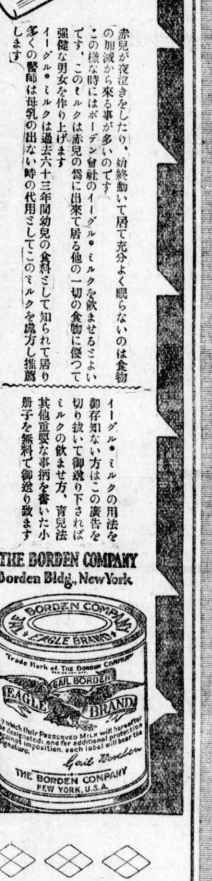 赤兒が夜泣きをしたり、始終動いて居て充分よく眠らないのは食物
の加減から來る事が多いのです
この樣な時にはボーデン會社のイーグル・ミルクを飲ませるとよい
です、このミルクは赤兒の爲に出來て居る他の一切の食物に優つて
强健な男女を作り上げます
イーグル・ミルクは過去六十三年間幼兒の食料として知られて居り
多くの醫師は母乳の出ない時の代用としてこのミルクを處方し推薦
します
イーグル・ミルクの用法を
御存知ない方はこの廣告を
切り拔いて御送り下されば、
ミルクの飲ませ方、育兒法
其他重要な事柄を書いた小
册子を無料で御送り致ます
THE BORDEN COMPANY
Borden Bldg., New York
THE BORDEN COMPANY
EAGLE BRAND
Trade Mark of The Borden Company
GAIL BORDEN
EAGLE BRAND
which their Preserved Milk will hereafter
be designated; and for additional protection
against imposition, each label will bear the
signature.
Gail Borden
THE BORDEN COMPANY
NEW YORK, U.S.A.